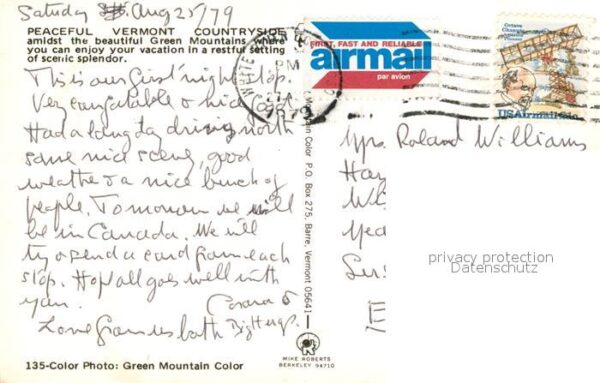 Saturday Aug 25/79
PEACEFUL VERMONT COUNTRYSIDE
amidst the beautiful Green Mountains where
you can enjoy your vacation in a restful setting
of scenic splendor.
This is our first night stop.
Very enjoyable & nice
Had a long day driving north
some nice scenery, good
weather & a nice bunch of
people. Tomorrow we will
be in Canada. We will
try & send a card from each
stop. Hope all goes well with
you.
Love from us both Big Hugs.
135-Color Photo: Green Mountain Color
Mountain Color P.O. Box 275, Barre, Vermont 05641
MIKE ROBERTS
BERKELEY 94710
PM
1979
FIRST, FAST AND RELIABLE
airmail
par avion
Octave
Chanute
Aviation
Pioneer
USAirmail 21c
Mrs. Roland Williams
privacy protection
Datenschutz